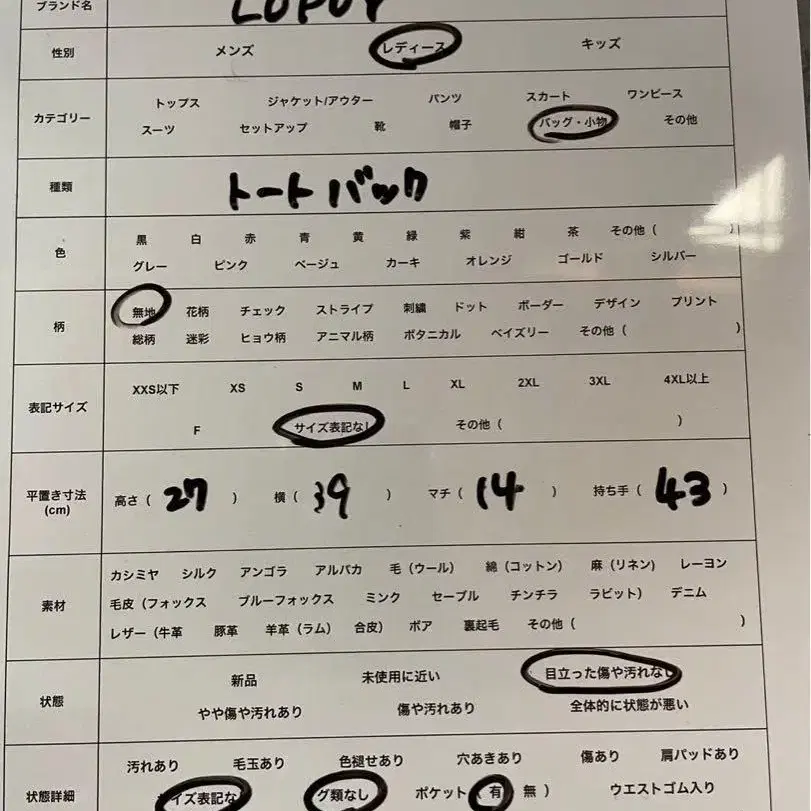 ブランド名
性別 メンズ レディース キッズ
カテゴリー
トップス ジャケット/アウター パンツ スカート ワンピース
スーツ セットアップ 靴 帽子 バッグ・小物 その他
種類 トートバック
色
黒 白 赤 青 黄 緑 紫 紺 茶 その他 ( )
グレー ピンク ベージュ カーキ オレンジ ゴールド シルバー
柄
無地 花柄 チェック ストライプ 刺繍 ドット ボーダー デザイン プリント
総柄 迷彩 ヒョウ柄 アニマル柄 ボタニカル ペイズリー その他 ( )
表記サイズ
XXS以下 XS S M L XL 2XL 3XL 4XL以上
F サイズ表記なし その他 ( )
平置き寸法
(cm)
高さ ( 27 ) 横 ( 39 ) マチ ( 14 ) 持ち手 ( 43 )
素材
カシミヤ シルク アンゴラ アルパカ 毛 (ウール) 綿 (コットン) 麻 (リネン) レーヨン
毛皮 (フォックス ブルーフォックス ミンク セーブル チンチラ ラビット) デニム
レザー (牛革 豚革 羊革 (ラム) 合皮) ボア 裏起毛 その他 ( )
状態
新品 未使用に近い 目立った傷や汚れなし
やや傷や汚れあり 傷や汚れあり 全体的に状態が悪い
状態詳細
汚れあり 毛玉あり 色褪せあり 穴あきあり 傷あり 肩パッドあり
イズ表記な グ類なし ポケット 有 無 ) ウエストゴム入り